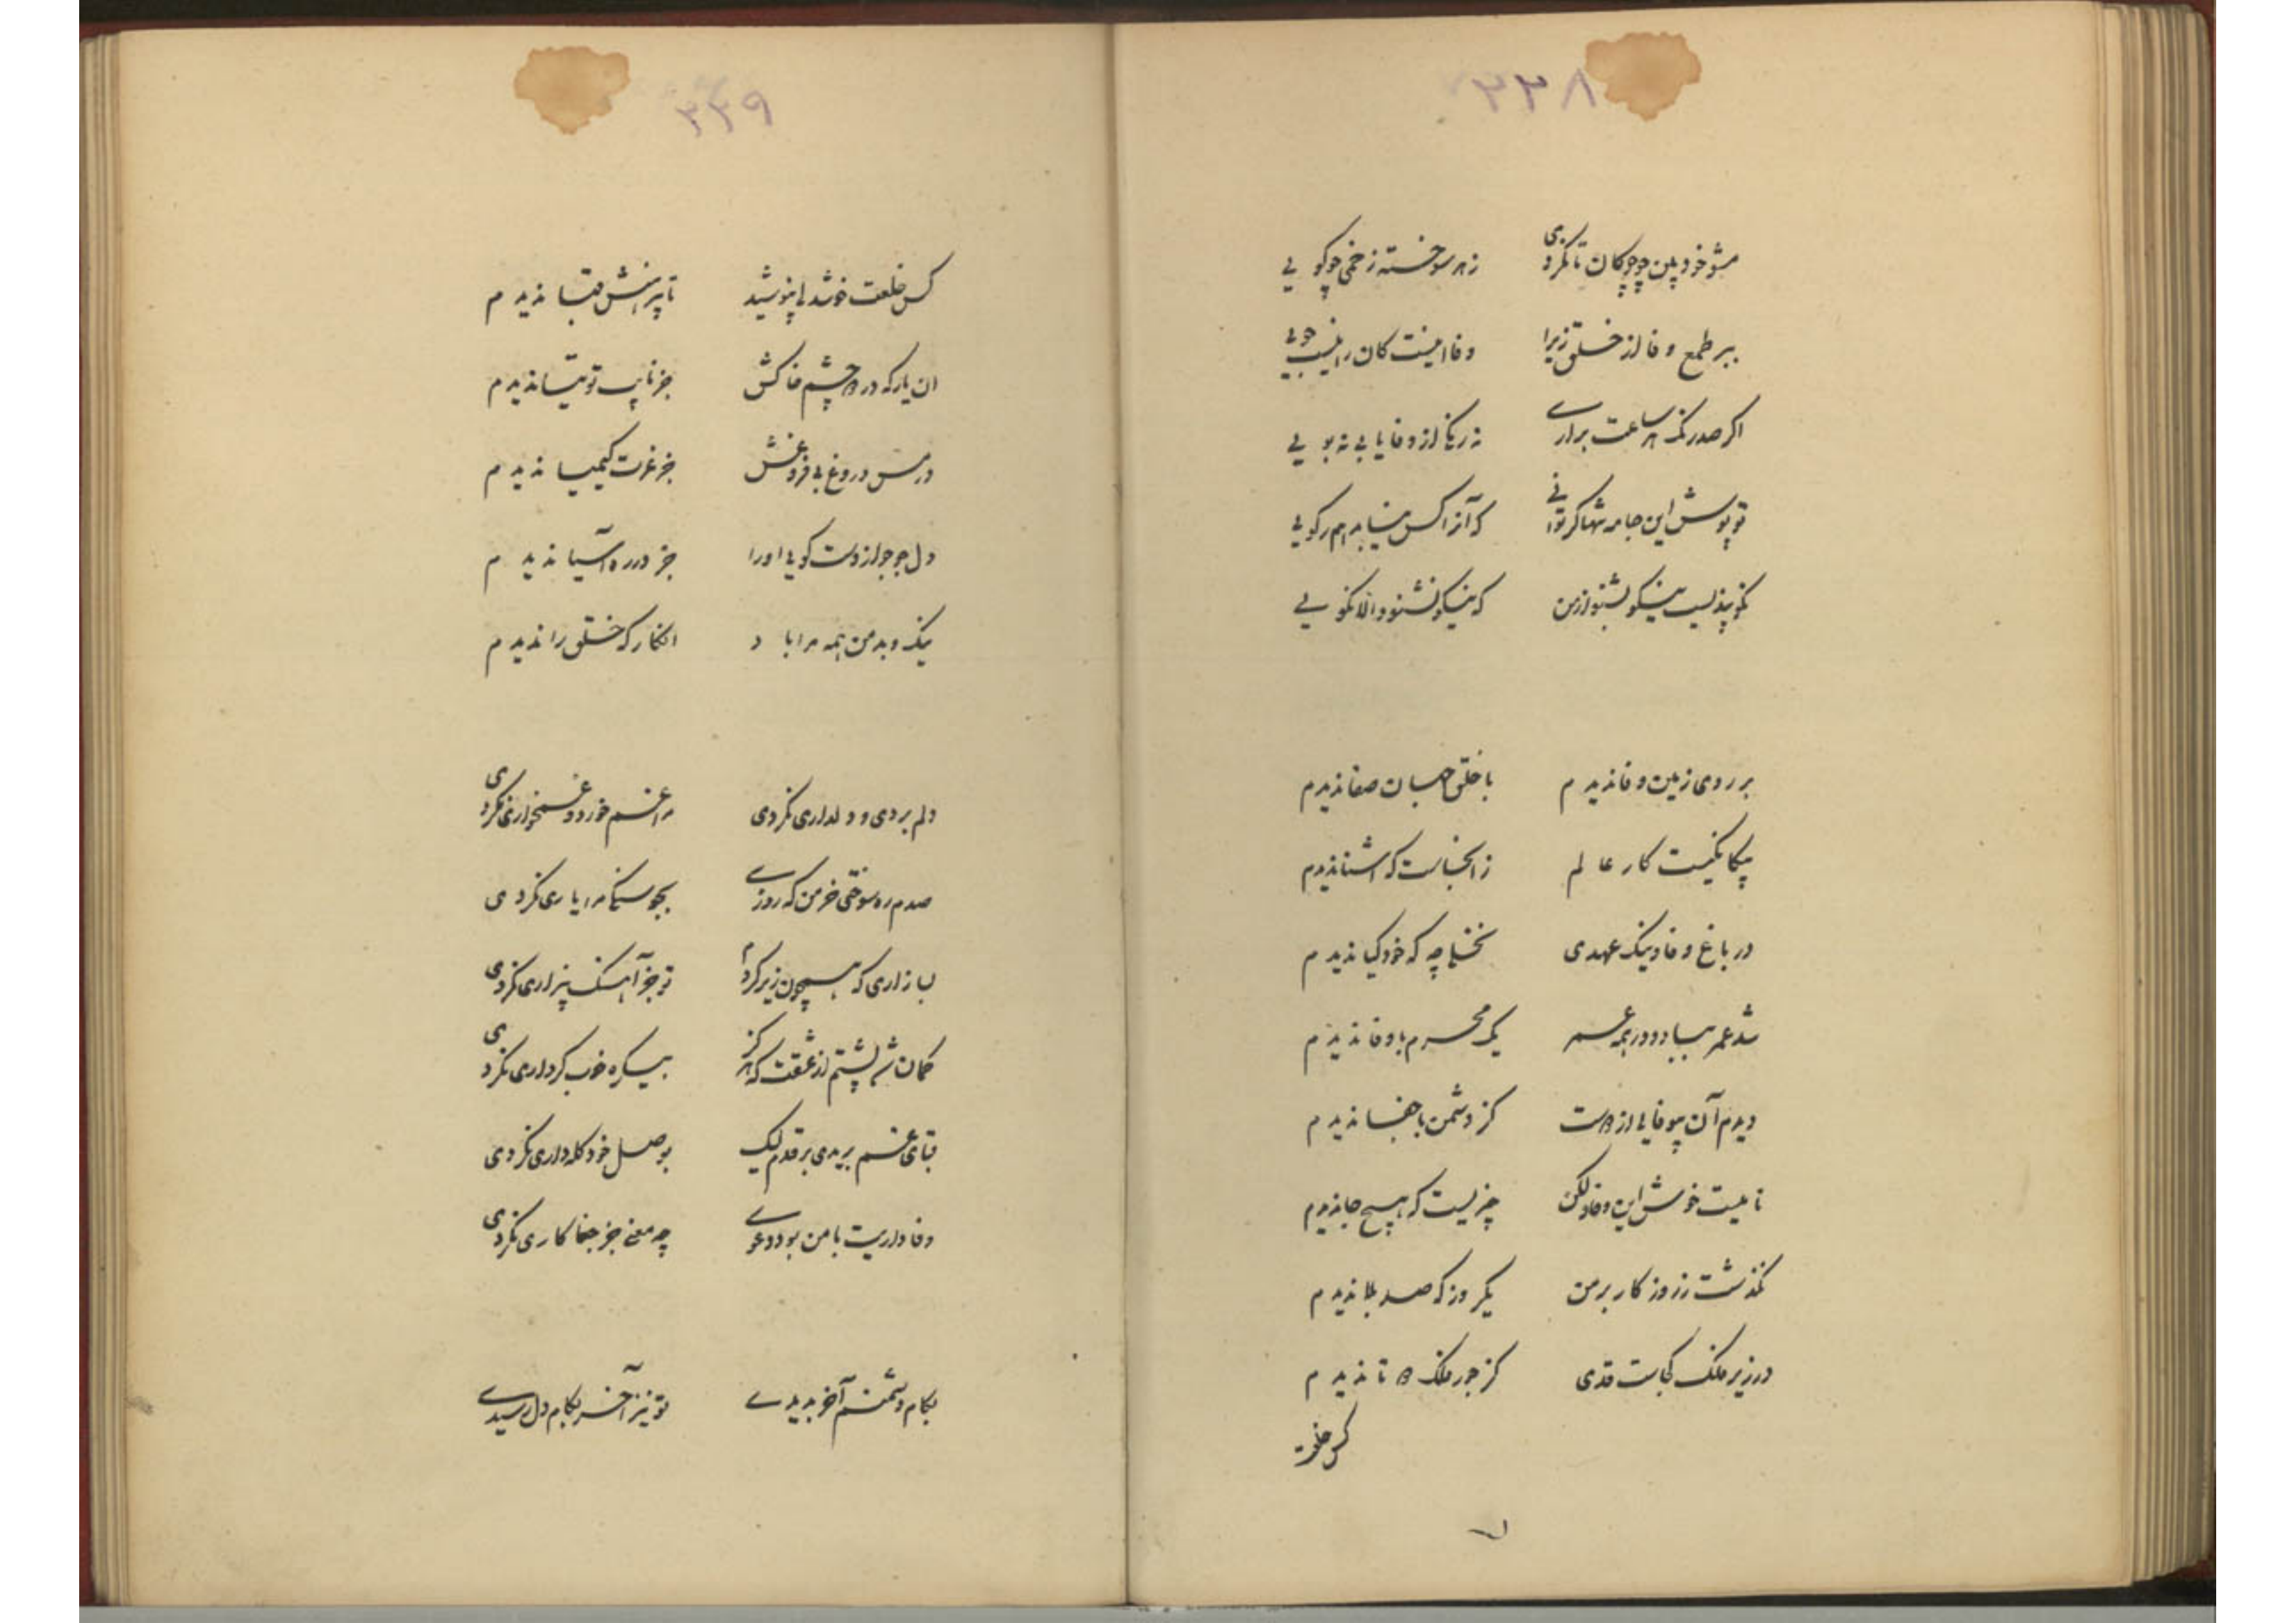 ۳۳۸
مشو خود بین چو چوکان تا نکردی    زهر سو خسته زخمی چو کویی
ببر طمع وفا از خلق زیرا    وفا اینست کان را نیست جویی
اکر صد رنک هر ساعت براری    نه رنک از وفا یابی نه بویی
تو پوش این جامه تنها کر توانی    که آنرا کس نباشد هم رکویی
نکو پندیست نیکو بشنو از من    که نیکو نشنود الا نکویی
بر روی زمین وفا ندیدم    با خلق جهان صفا ندیدم
بیکانکیست کار عالم    زانجاست که اشنا ندیدم
در باغ وفا و نیک عهدی    نخلا چه که خود کیا ندیدم
شد عمر بباد و در همه عمر    یک محرم با وفا ندیدم
دیدم آن بیوفایی از دوست    کز دشمن با جفا ندیدم
نامیست خوش این وفا ولکن    چیزیست که هیچ جا ندیدم
نکذشت ز روزکار بر من    یکروز که صد بلا ندیدم
در زیر فلک کجاست قدی    کز جور فلک دو تا ندیدم
کس خلعت
۳۳۹
کس خلعت خوشدلی نپوشید    تا پیرهنش قبا ندیدم
ان یار که در دو چشم خاکش    جز نایب توتیا ندیدم
در مس دروغ بی فروغش    جز غرت کیمیا ندیدم
دل جو جو از دست کویی او را    جز در ره آسیا ندیدم
نیک و بد من همه مرا باد    انکار که خلق را ندیدم
دلم بردی و دلداری نکردی    مرا غم خورد و غمخواری نکردی
صدم ره سوختی خرمن که روزی    بجو سنکی مرا یاری نکردی
بازاری که همچون زیر کردم    تو جز آهنک بیزاری نکردی
کمان شد پشتم از عشقت که هرکز    بیک ره خوب کرداری نکردی
قبای غم بریدی بر قدم لیک    بوصل خود کله داری نکردی
وفاداریت با من بود دعوی    چه معنی جز جفاکاری نکردی
بکام دشمنم آخر بدیدی    تو نیز آخر بکام دل رسیدی